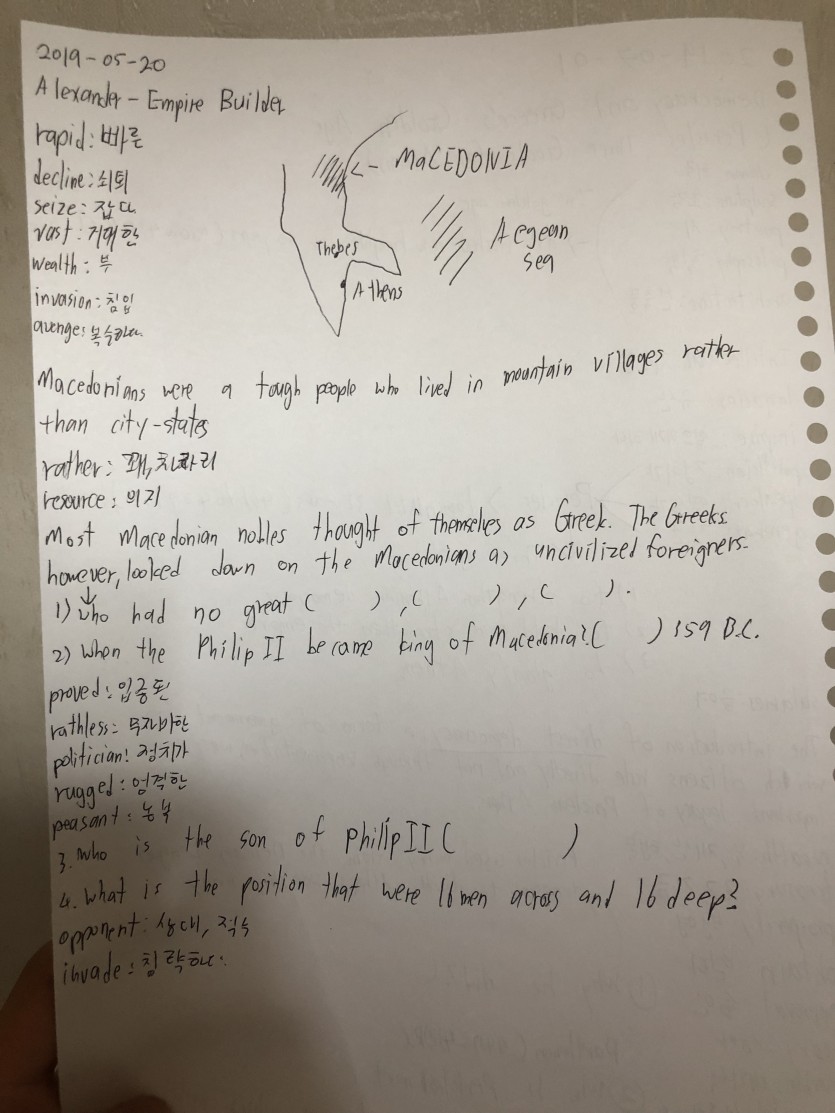 2019-05-20
Alexander - Empire Builder
rapid: 빠른
decline: 쇠퇴
seize: 잡다
vast: 거대한
wealth: 부
invasion: 침입
avenge: 복수하다.
MaCEDONIA
Aegean
sea
Thebes
Athens
Macedonians were a tough people who lived in mountain villages rather
than city-states
rather: 꽤, 차라리
resource: 의지
Most Macedonian nobles thought of themselves as Greek. The Greeks
however, looked down on the Macedonians as uncivilized foreigners.
1) who had no great ( ), ( ), ( ).
2) When the Philip II became king of Macedonia? ( ) 359 B.C.
proved: 입증된
rathless: 무자비한
politician: 정치가
rugged: 엄격한
peasant: 농부
3. who is the son of Philip II ( )
4. What is the position that were 16 men across and 16 deep?
opponent: 상대, 적수
invade: 침략하다.